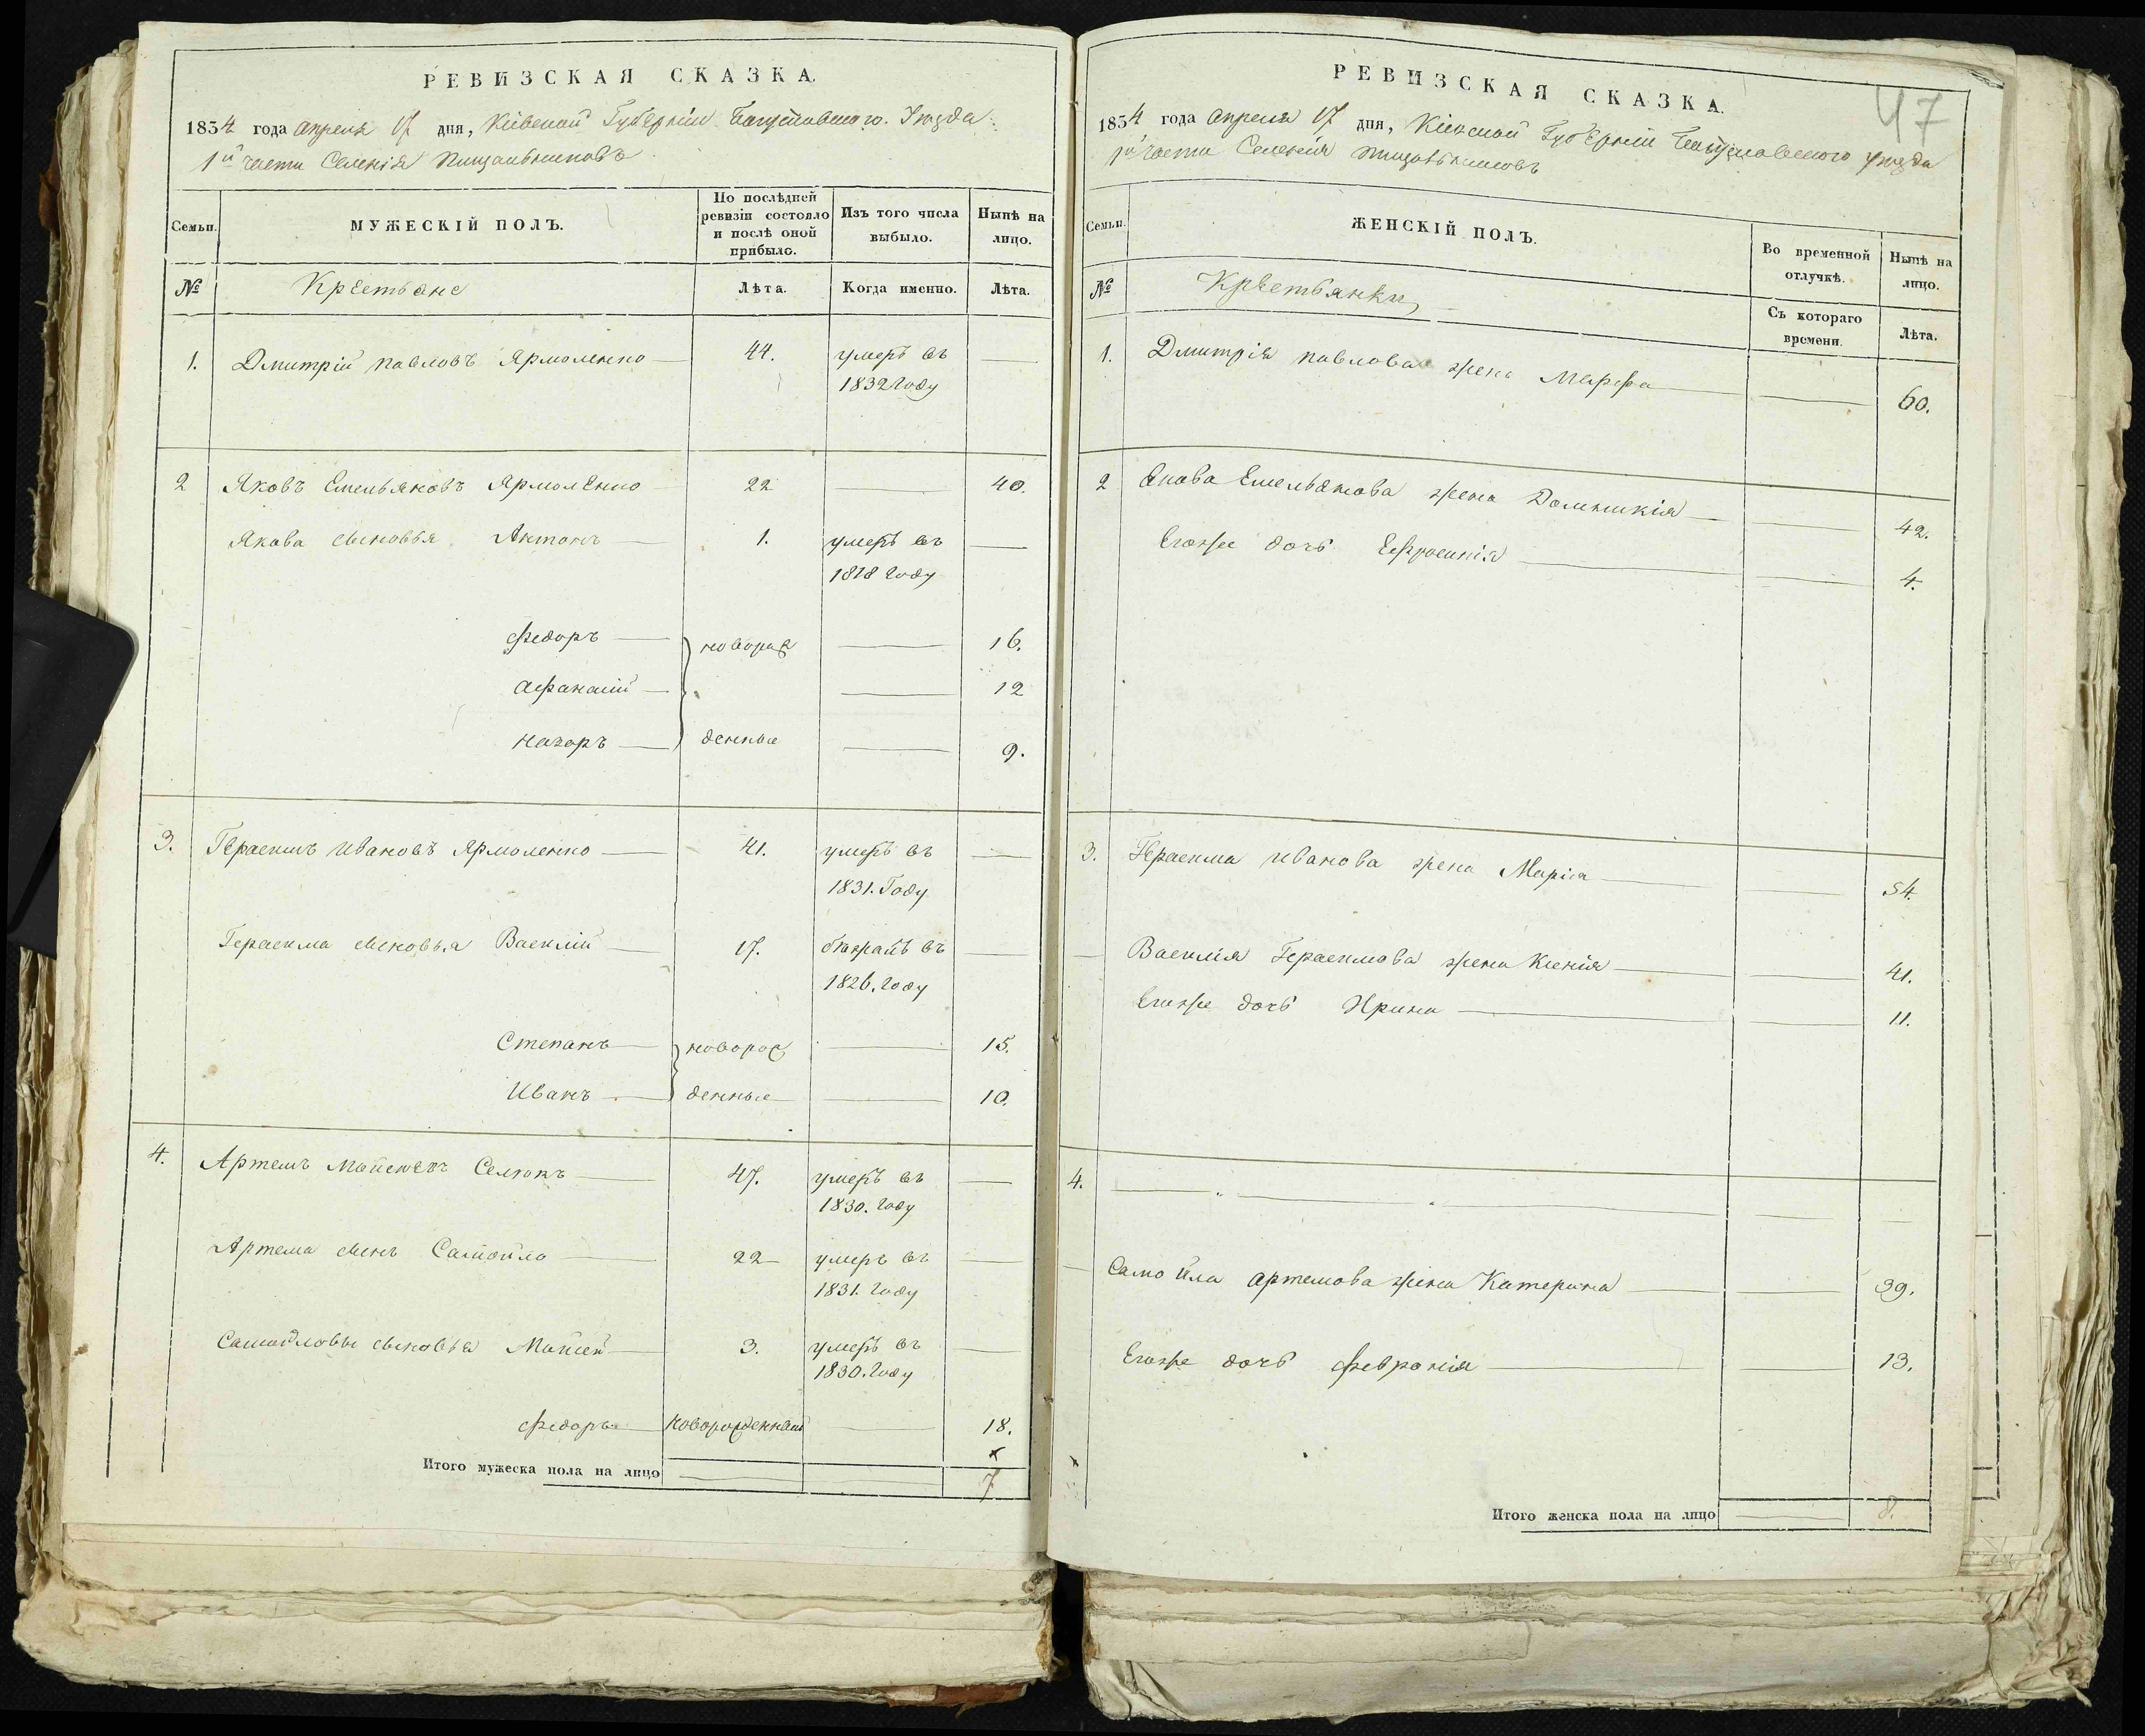 РЕВИЗСКАЯ СКАЗКА.
1834 года апреля 17 дня, Кіевской Губерніи Богуславского Уезда
1й части Селенія Пищальниковъ
Семьи.
МУЖЕСКІЙ ПОЛЪ.
По послѣдней ревизіи состояло и послѣ оной прибыло.
Изъ того числа выбыло.
Нынѣ на лицо.
№
Крестьяне
Лѣта.
Когда именно.
Лѣта.
1. Дмитрій павловъ Ярмоленко 44. умеръ въ
1832 году
2 Яковъ Емельяновъ Ярмоленко 22 40.
Якова сыновья Антонъ 1. умеръ въ
1818 году
федоръ новорож 16.
афанасій 12
назоръ денные 9.
3. Герасимъ ивановъ Ярмоленко 41. умеръ въ
1831. Году
Герасима сыновья Василій 17. бѣжалъ въ
1826. году
Степанъ новорож 15.
Иванъ денные 10.
4. Артемъ Селюкъ 47. умеръ въ
1830. году
Артема сынъ Самойло 22 умеръ въ
1831. году
Самойловы сыновья Мойсей 3. умеръ въ
1830. году
федоръ новорожденный 18.
Итого мужеска пола на лицо 7
47
РЕВИЗСКАЯ СКАЗКА.
1834 года апреля 17 дня, Кіевской Губерніи Богуславского уезда
1й части Селенія пищальниковъ
Семьи.
ЖЕНСКІЙ ПОЛЪ.
Во временной отлучкѣ.
Нынѣ на лицо.
№
Крестьянки
Съ котораго времени.
Лѣта.
1. Дмитрія павлова жена Марфа 60.
2 Якова Емельянова жена Домникія 42.
Егоже дочь Ефросинія 4.
3. Герасима иванова жена Марія 54.
Василія Герасимова жена Ксенія 41.
Егоже дочь Ирина 11.
4.
Самойла артемова жена Катерина 39.
Егоже дочь февронія 13.
Итого женска пола на лицо 8.